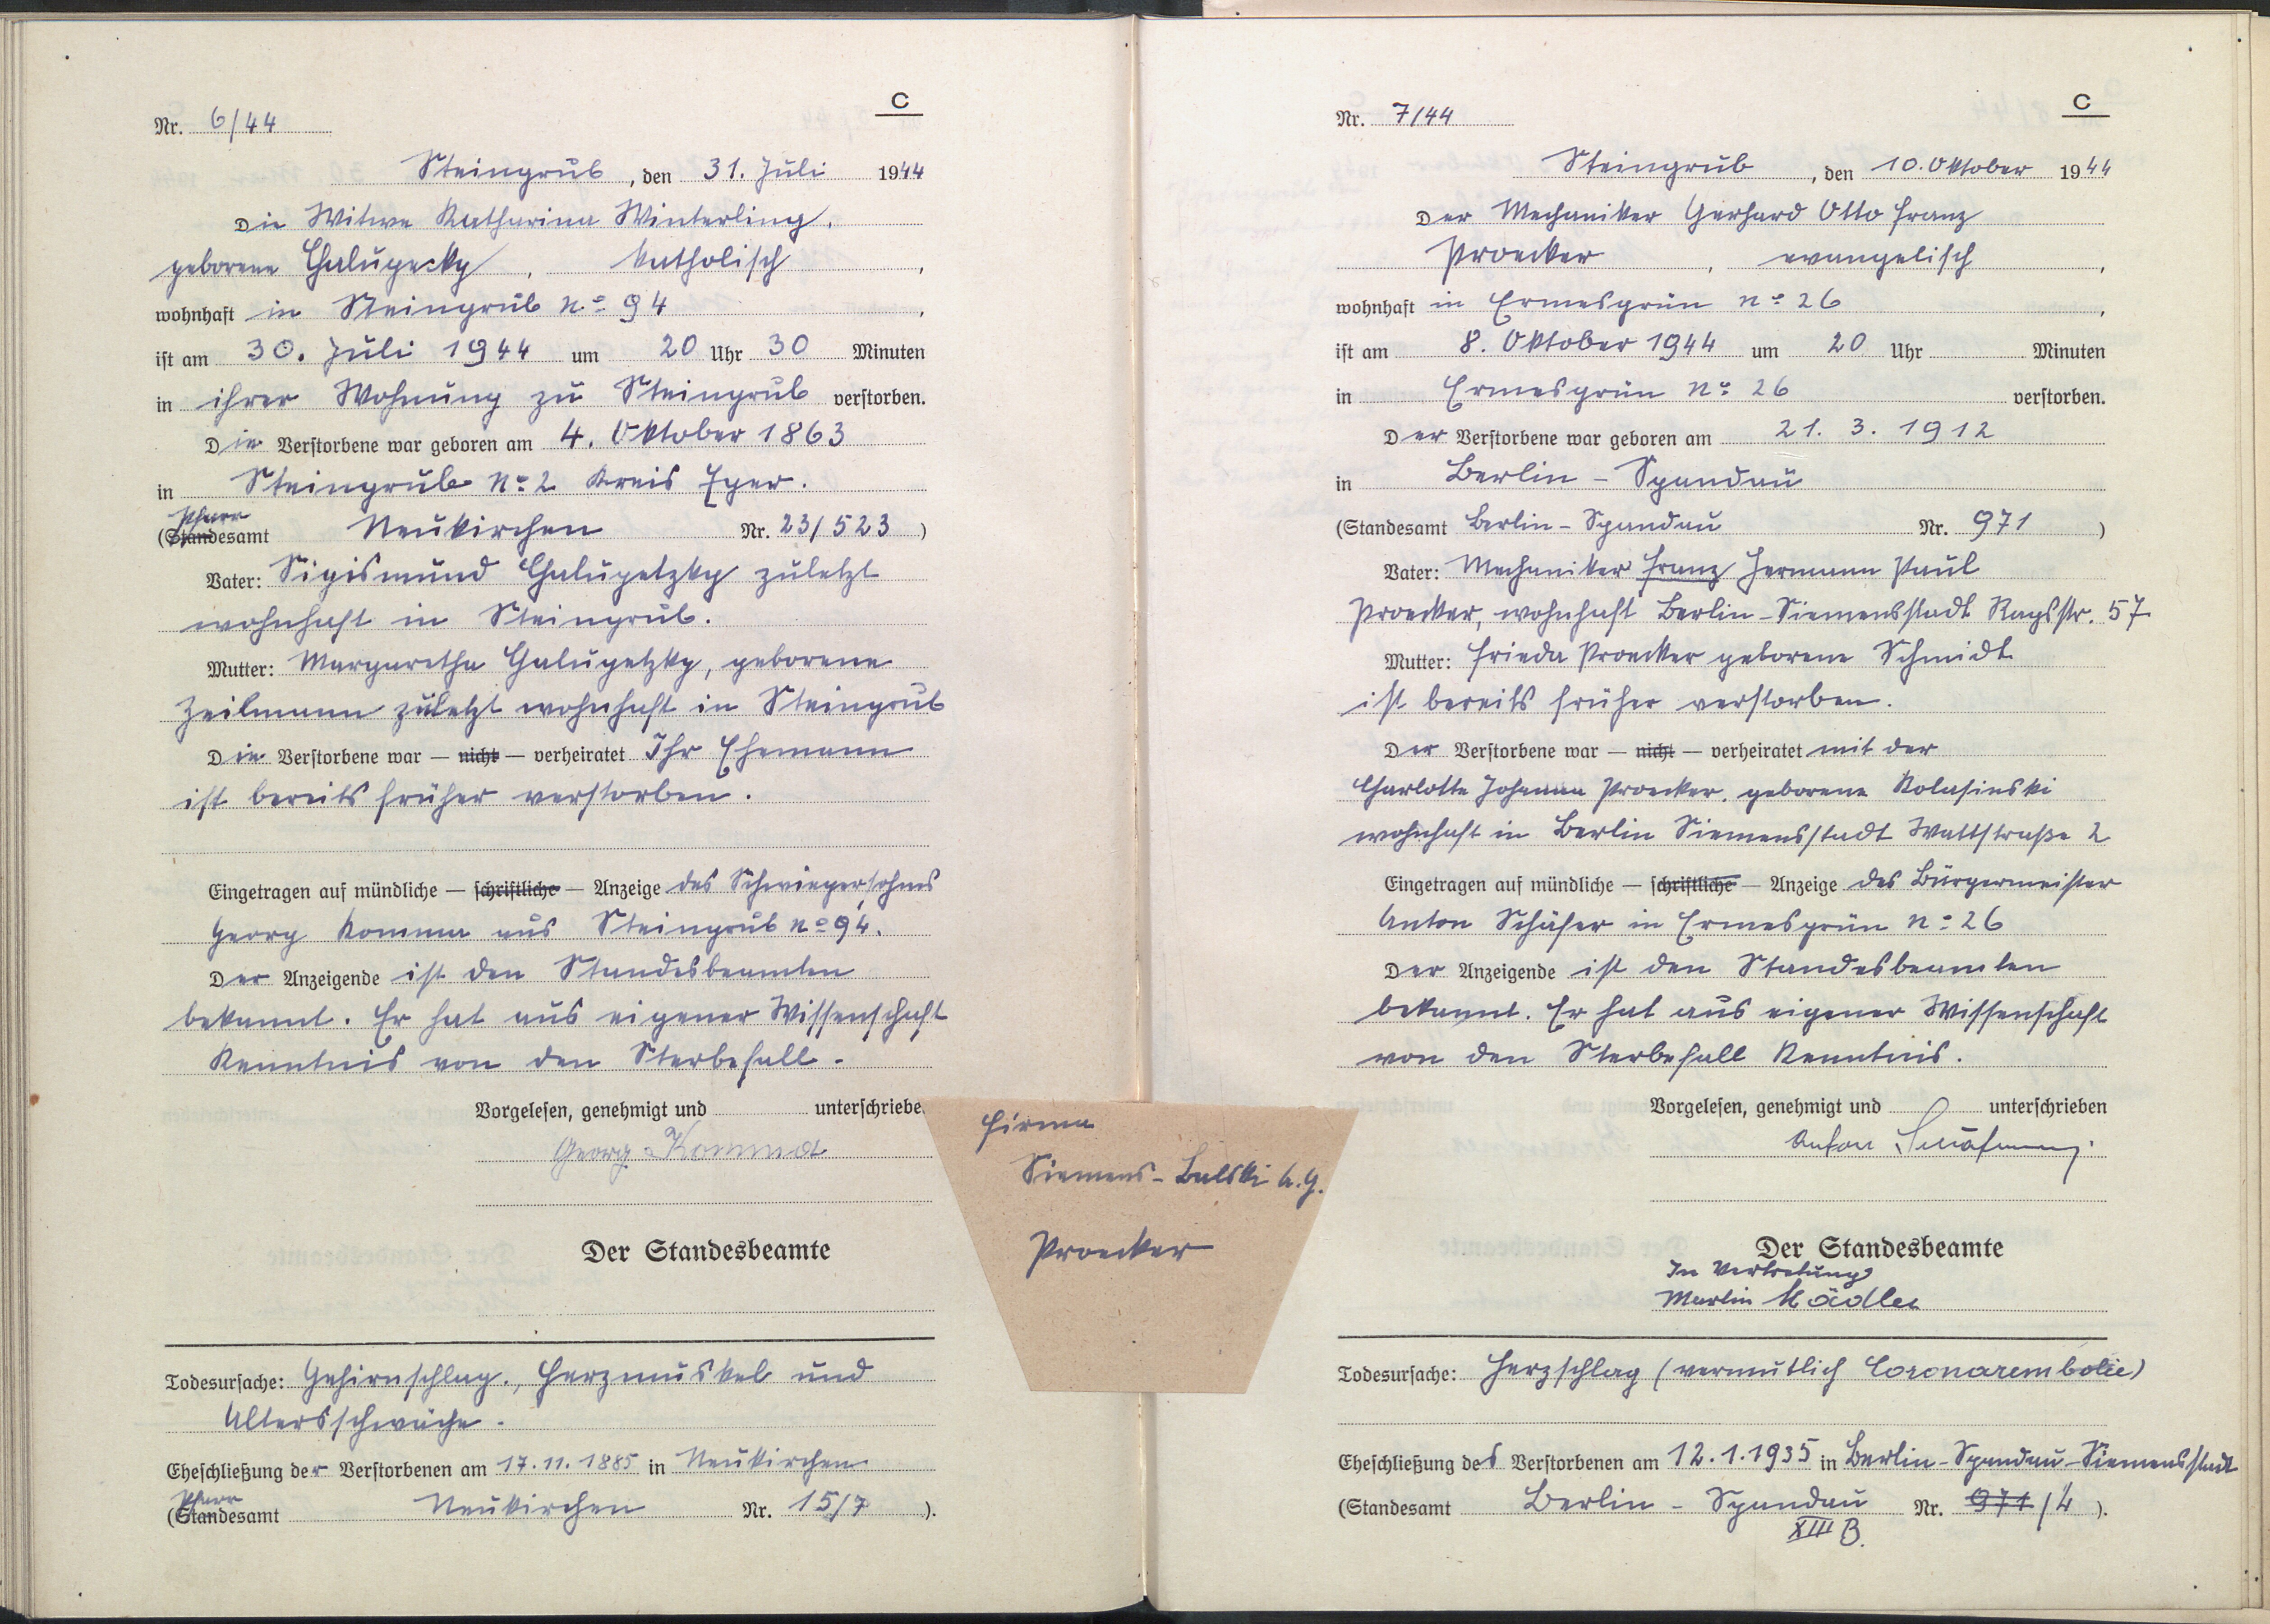 C
Nr. 6/44
Steingrub, den 31. Juli 1944
Die Witwe Katharina Winterling,
geborene Chalupecky, katholisch,
wohnhaft in Steingrub No 94,
ist am 30. Juli 1944 um 20 Uhr 30 Minuten
in ihrer Wohnung zu Steingrub verstorben.
Die Verstorbene war geboren am 4. Oktober 1863
in Steingrub No 2 Kreis Eger.
Pfarr
(Standesamt Neukirchen Nr. 23/523)
Vater: Sigismund Chalupetzky zuletzt
wohnhaft in Steingrub.
Mutter: Margaretha Galupetzky, geborene
Zeilmann zuletzt wohnhaft in Steingrub
Die Verstorbene war — nicht — verheiratet Ihr Ehemann
ist bereits früher verstorben.
Eingetragen auf mündliche — schriftliche — Anzeige des Schwiegersohnes
Georg Komma aus Steingrub No 94.
Der Anzeigende ist den Standesbeamten
bekannt. Er hat aus eigener Wissenschaft
Kenntnis von den Sterbefall.
Vorgelesen, genehmigt und unterschriebe
Georg Komma
Der Standesbeamte
Todesursache: Gehirnschlag., Herzmuskel und
Altersschwäche.
Eheschließung der Verstorbenen am 17.11.1885 in Neukirchen
Pfarr
(Standesamt Neukirchen Nr. 15/7).
Firma
Siemens-Balski A.G.
Proecker
C
Nr. 7/44
Steingrub, den 10. Oktober 1944
Der Mechaniker Gerhard Otto Franz
Proecker, evangelisch,
wohnhaft in Ermesgrün No 26,
ist am 8. Oktober 1944 um 20 Uhr Minuten
in Ermesgrün No 26 verstorben.
Der Verstorbene war geboren am 21. 3. 1912
in Berlin-Spandau
(Standesamt Berlin-Spandau Nr. 971)
Vater: Mechaniker Franz Hermann Paul
Proecker, wohnhaft Berlin-Siemensstadt Rapsstr. 57
Mutter: Frieda Proecker geborene Schmidt
ist bereits früher verstorben.
Der Verstorbene war — nicht — verheiratet mit der
Charlotte Johanna Proecker, geborene Kolasinski
wohnhaft in Berlin Siemensstadt Wattstraße 2
Eingetragen auf mündliche — schriftliche — Anzeige des Bürgermeister
Anton Schäfer in Ermesgrün No 26
Der Anzeigende ist den Standesbeamten
bekannt. Er hat aus eigener Wissenschaft
von den Sterbefall Kenntnis.
Vorgelesen, genehmigt und unterschrieben
Anton
Der Standesbeamte
In Vertretung
Martin Mädler
Todesursache: Herzschlag (vermutlich Coronarembolie)
Eheschließung des Verstorbenen am 12.1.1935 in Berlin-Spandau-Siemensstadt
(Standesamt Berlin-Spandau Nr. 971/4).
XIII B.